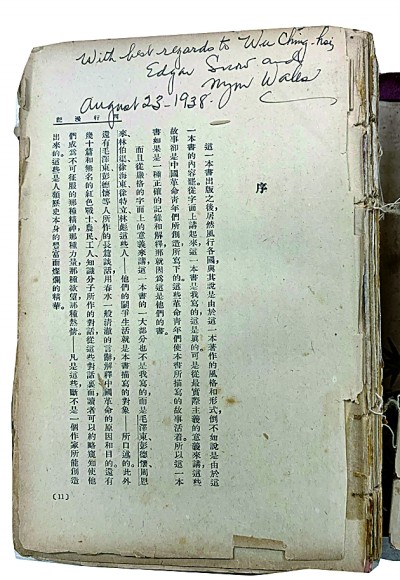 With best regards to Wu Ching-hsi
Edgar Snow and
Nym Wales
August 23-1938.
西行漫記
序
這一本書出版之後,居然風行各國與其說是由於這一本著作的風格和形式倒不如說是由於這
一本書的內容罷從字面上講起來這一本書是我寫的,這是眞的可是從最實際主義的意義來講這些
故事卻是中國革命靑年們所創造所寫下的這些革命靑年們使本書所描寫的故事活着所以這一本
書如果是一種正確的記錄和解釋那就因爲這是他們的書。
而且從嚴格的字面上的意義來講這一本書的一大部分也不是我寫的,而是毛澤東、彭德懷、周恩
來、林伯渠、徐海東、徐特立、林彪這些人——他們的鬥爭生活就是本書描寫的對象——所口述的。此外
還有毛澤東彭德懷等人所作的長篇談話用春水一般淸澈的言辭解釋中國革命的原因和目的還有
幾十篇和無名的紅色戰士農民工人知識分子所作的對話從這些對話裏面讀者可以約略窺知使他
們成爲不可征服的那種精神那種力量那種慾望那種熱情——凡是這些斷不是一個作家所能創造
出來的。這些是人類歷史本身的豐富而燦爛的精華。
(11)